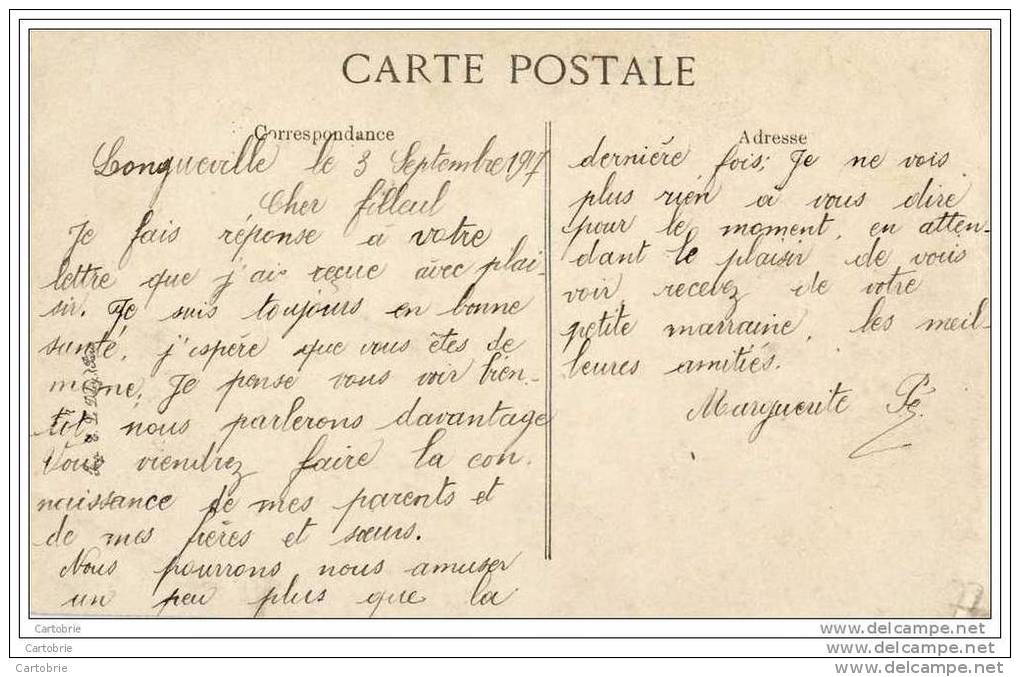 CARTE POSTALE
Correspondance
Longueville le 3 Septembre 1917
Cher filleul
Je fais réponse à votre
lettre que j'ai reçue avec plai-
sir. Je suis toujours en bonne
santé, j'espère que vous êtes de
même, Je pense vous voir bien-
tôt, nous parlerons davantage
Vous viendrez faire la con-
naissance de mes parents et
de mes frères et sœurs.
Nous pourrons nous amuser
un peu plus que la
Adresse
dernière fois; Je ne vois
plus rien à vous dire
pour le moment, en atten-
dant le plaisir de vous
voir, recevez de votre
petite marraine, les meil-
leures amitiés.
Marguerite
77
Cartobrie www.delcampe.net
Cartobrie www.delcampe.net
Cartobrie www.delcampe.net